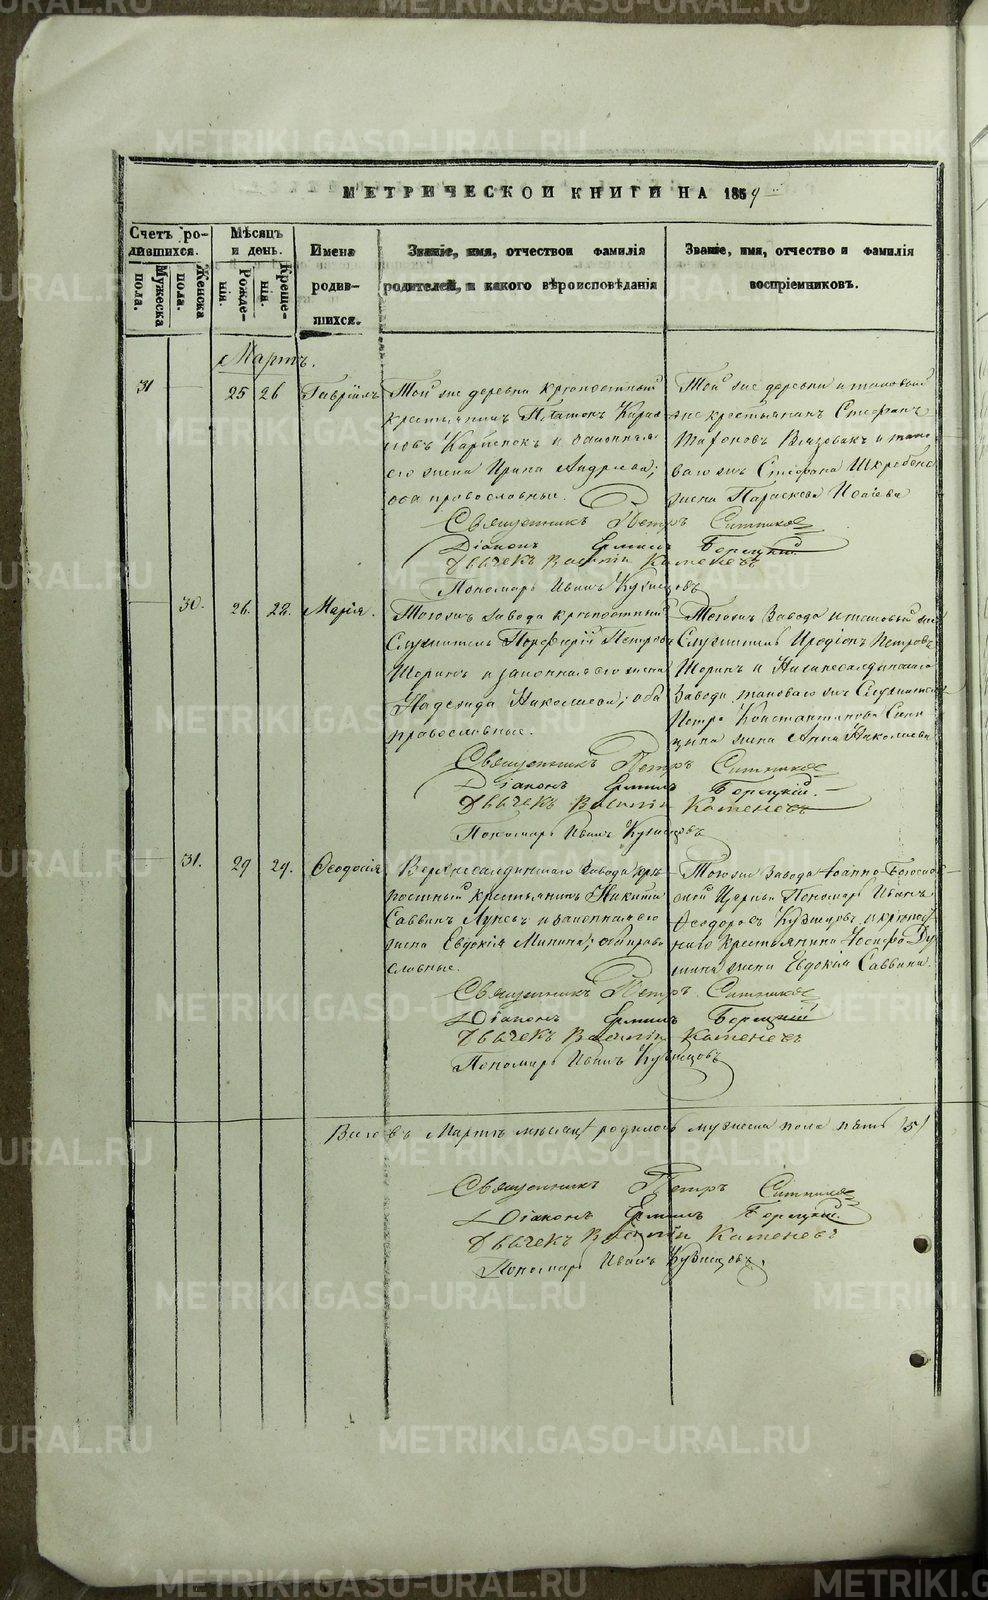 МЕТРИЧЕСКОЙ КНИГИ НА 1859
Счетъ родившихся.
Мужеска пола.
Женска пола.
Мѣсяцъ и день.
Рожденія.
Крещенія.
Имена родившихся.
Званіе, имя, отчество и фамилія
родителей, и какого вѣроисповѣданія
Званіе, имя, отчество и фамилія
воспріемниковъ.
Мартъ.
31 25 26 Гавріилъ
Той же деревни крѣпостный
крестьянинъ Платонъ
и законная
его жена Ирина Андреева;
оба православные.
Той же деревни и таковый
же крестьянинъ Стефанъ
и тако
ваго же Стефана
жена Параскева Исаіева
Священникъ Петръ Ситниковъ
Діаконъ Ермилъ Борецкій.
Дьячекъ Василій Каменевъ
Пономарь Иванъ Кузнецовъ
30. 26. 28. Марія.
Тогожъ завода крѣпостный
Служитель Порфирій Петровъ
Шоринъ и законная его жена
Надежда Николаева; оба
православные.
Тогожъ Завода и таковый же
Служитель Иродіонъ Петровъ
Шоринъ и Нижнесалдинскаго
Завода таковаго жъ Служителя
Петра Константинова
жена Анна Николаева
Священникъ Петръ Ситниковъ
Діаконъ Ермилъ Борецкій.
Дьячекъ Василій Каменевъ
Пономарь Иванъ Кузнецовъ
31. 29 29. Ѳеодосія
Верхнесалдинскаго Завода крѣ
постный крестьянинъ Никита
Саввинъ Лунёвъ и законная его
жена Евдокія Минина; оба право
славные.
Тогоже Завода Іоанно-Богослов
ской Церкви Пономарь Иванъ
Ѳеодоровъ Кузнецовъ и крѣпост
наго крестьянина Іосифа
жена Евдокія Саввина.
Священникъ Петръ Ситниковъ
Діаконъ Ермилъ Борецкій
Дьячекъ Василій Каменевъ
Пономарь Иванъ Кузнецовъ
Всего въ Мартѣ мѣсяцѣ родилось мужеска пола пять /5/
Священникъ Петръ Ситниковъ
Діаконъ Ермилъ Борецкій.
Дьячекъ Василій Каменевъ
Пономарь Иванъ Кузнецовъ.
METRIKI.GASO-URAL.RU